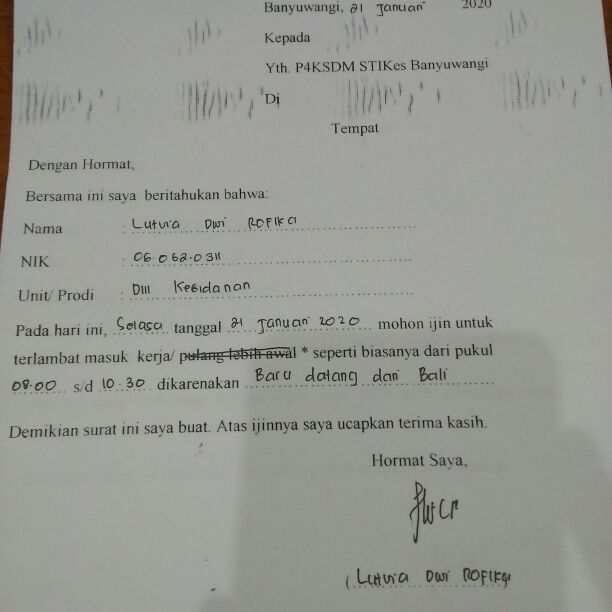 Banyuwangi, 21 Januari 2020
Kepada
Yth. P4KSDM STIKes Banyuwangi
Di
Tempat
Dengan Hormat,
Bersama ini saya beritahukan bahwa:
Nama : Lutvia Dwi ROFIKA
NIK : 06.062.0311
Unit/ Prodi : DIII Kebidanan
Pada hari ini, Selasa tanggal 21 Januari 2020 mohon ijin untuk
terlambat masuk kerja/ pulang lebih awal * seperti biasanya dari pukul
08.00 s/d 10.30 dikarenakan Baru datang dari Bali
Demikian surat ini saya buat. Atas ijinnya saya ucapkan terima kasih.
Hormat Saya,
( Lutvia Dwi ROFIKA